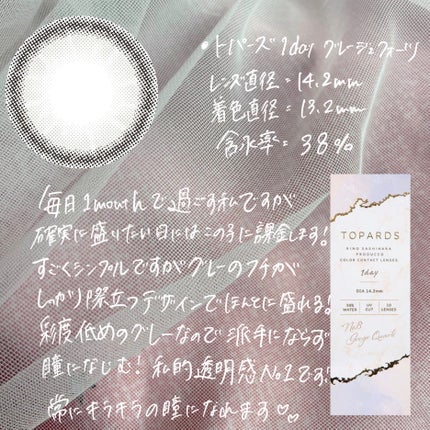 • トパーズ 1day グレージュクォーツ
レンズ直径 = 14.2mm
着色直径 = 13.2mm
含水率 = 38%
毎日 1month で過ごす私ですが
確実に盛りたい日にはこの子に課金します!
すごくシンプルですがグレーのフチが
しっかり際立つデザインでほんとに盛れる!
彩度低めのグレーなので派手にならず
瞳になじむ! 私的透明感No.1です
常にキラキラの瞳になれます♡♡
TOPARDS
RINO SASHIHARA
PRODUCED
COLOR CONTACT LENSES
1day
DIA 14.2mm
WATER
UV CUT
10 LENSES